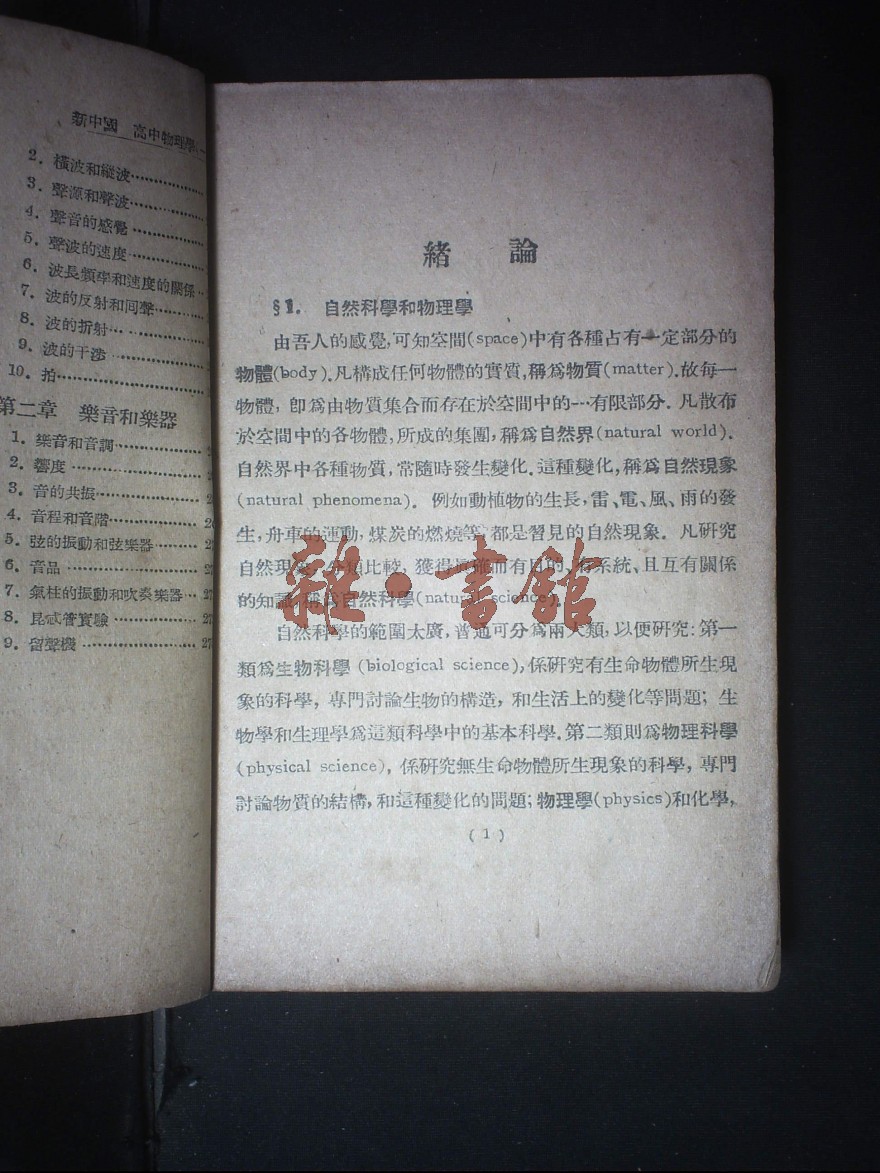 新中國 高中物理學
2. 橫波和縱波
3. 聲源和聲波
4. 聲音的感覺
5. 聲波的速度
6. 波長頻率和速度的關係
7. 波的反射和回聲
8. 波的折射
9. 波的干涉
10. 拍
第二章 樂音和樂器
1. 樂音和音調
2. 響度
3. 音的共振
4. 音程和音階
5. 弦的振動和弦樂器
6. 音品
7. 氣柱的振動和吹奏樂器
8. 昆忒管實驗
9. 留聲機
緒 論
§1. 自然科學和物理學
由吾人的感覺,可知空間(space)中有各種占有一定部分的
物體(body).凡構成任何物體的實質,稱爲物質(matter).故每一
物體, 卽爲由物質集合而存在於空間中的一有限部分. 凡散布
於空間中的各物體,所成的集團,稱爲自然界(natural world).
自然界中各種物質,常隨時發生變化.這種變化,稱爲自然現象
(natural phenomena). 例如動植物的生長,雷、電、風、雨的發
生,舟車的運動,煤炭的燃燒等,都是習見的自然現象. 凡研究
自然現象,分類比較,獲得正確而有目的、有系統、且互有關係
的知識,稱爲自然科學(natural science).
自然科學的範圍太廣, 普通可分爲兩大類,以便研究: 第一
類爲生物科學 (biological science),係研究有生命物體所生現
象的科學, 專門討論生物的構造, 和生活上的變化等問題; 生
物學和生理學爲這類科學中的基本科學.第二類則爲物理科學
(physical science), 係研究無生命物體所生現象的科學, 專門
討論物質的結構,和這種變化的問題;物理學(physics)和化學,
(1)
雜·書館